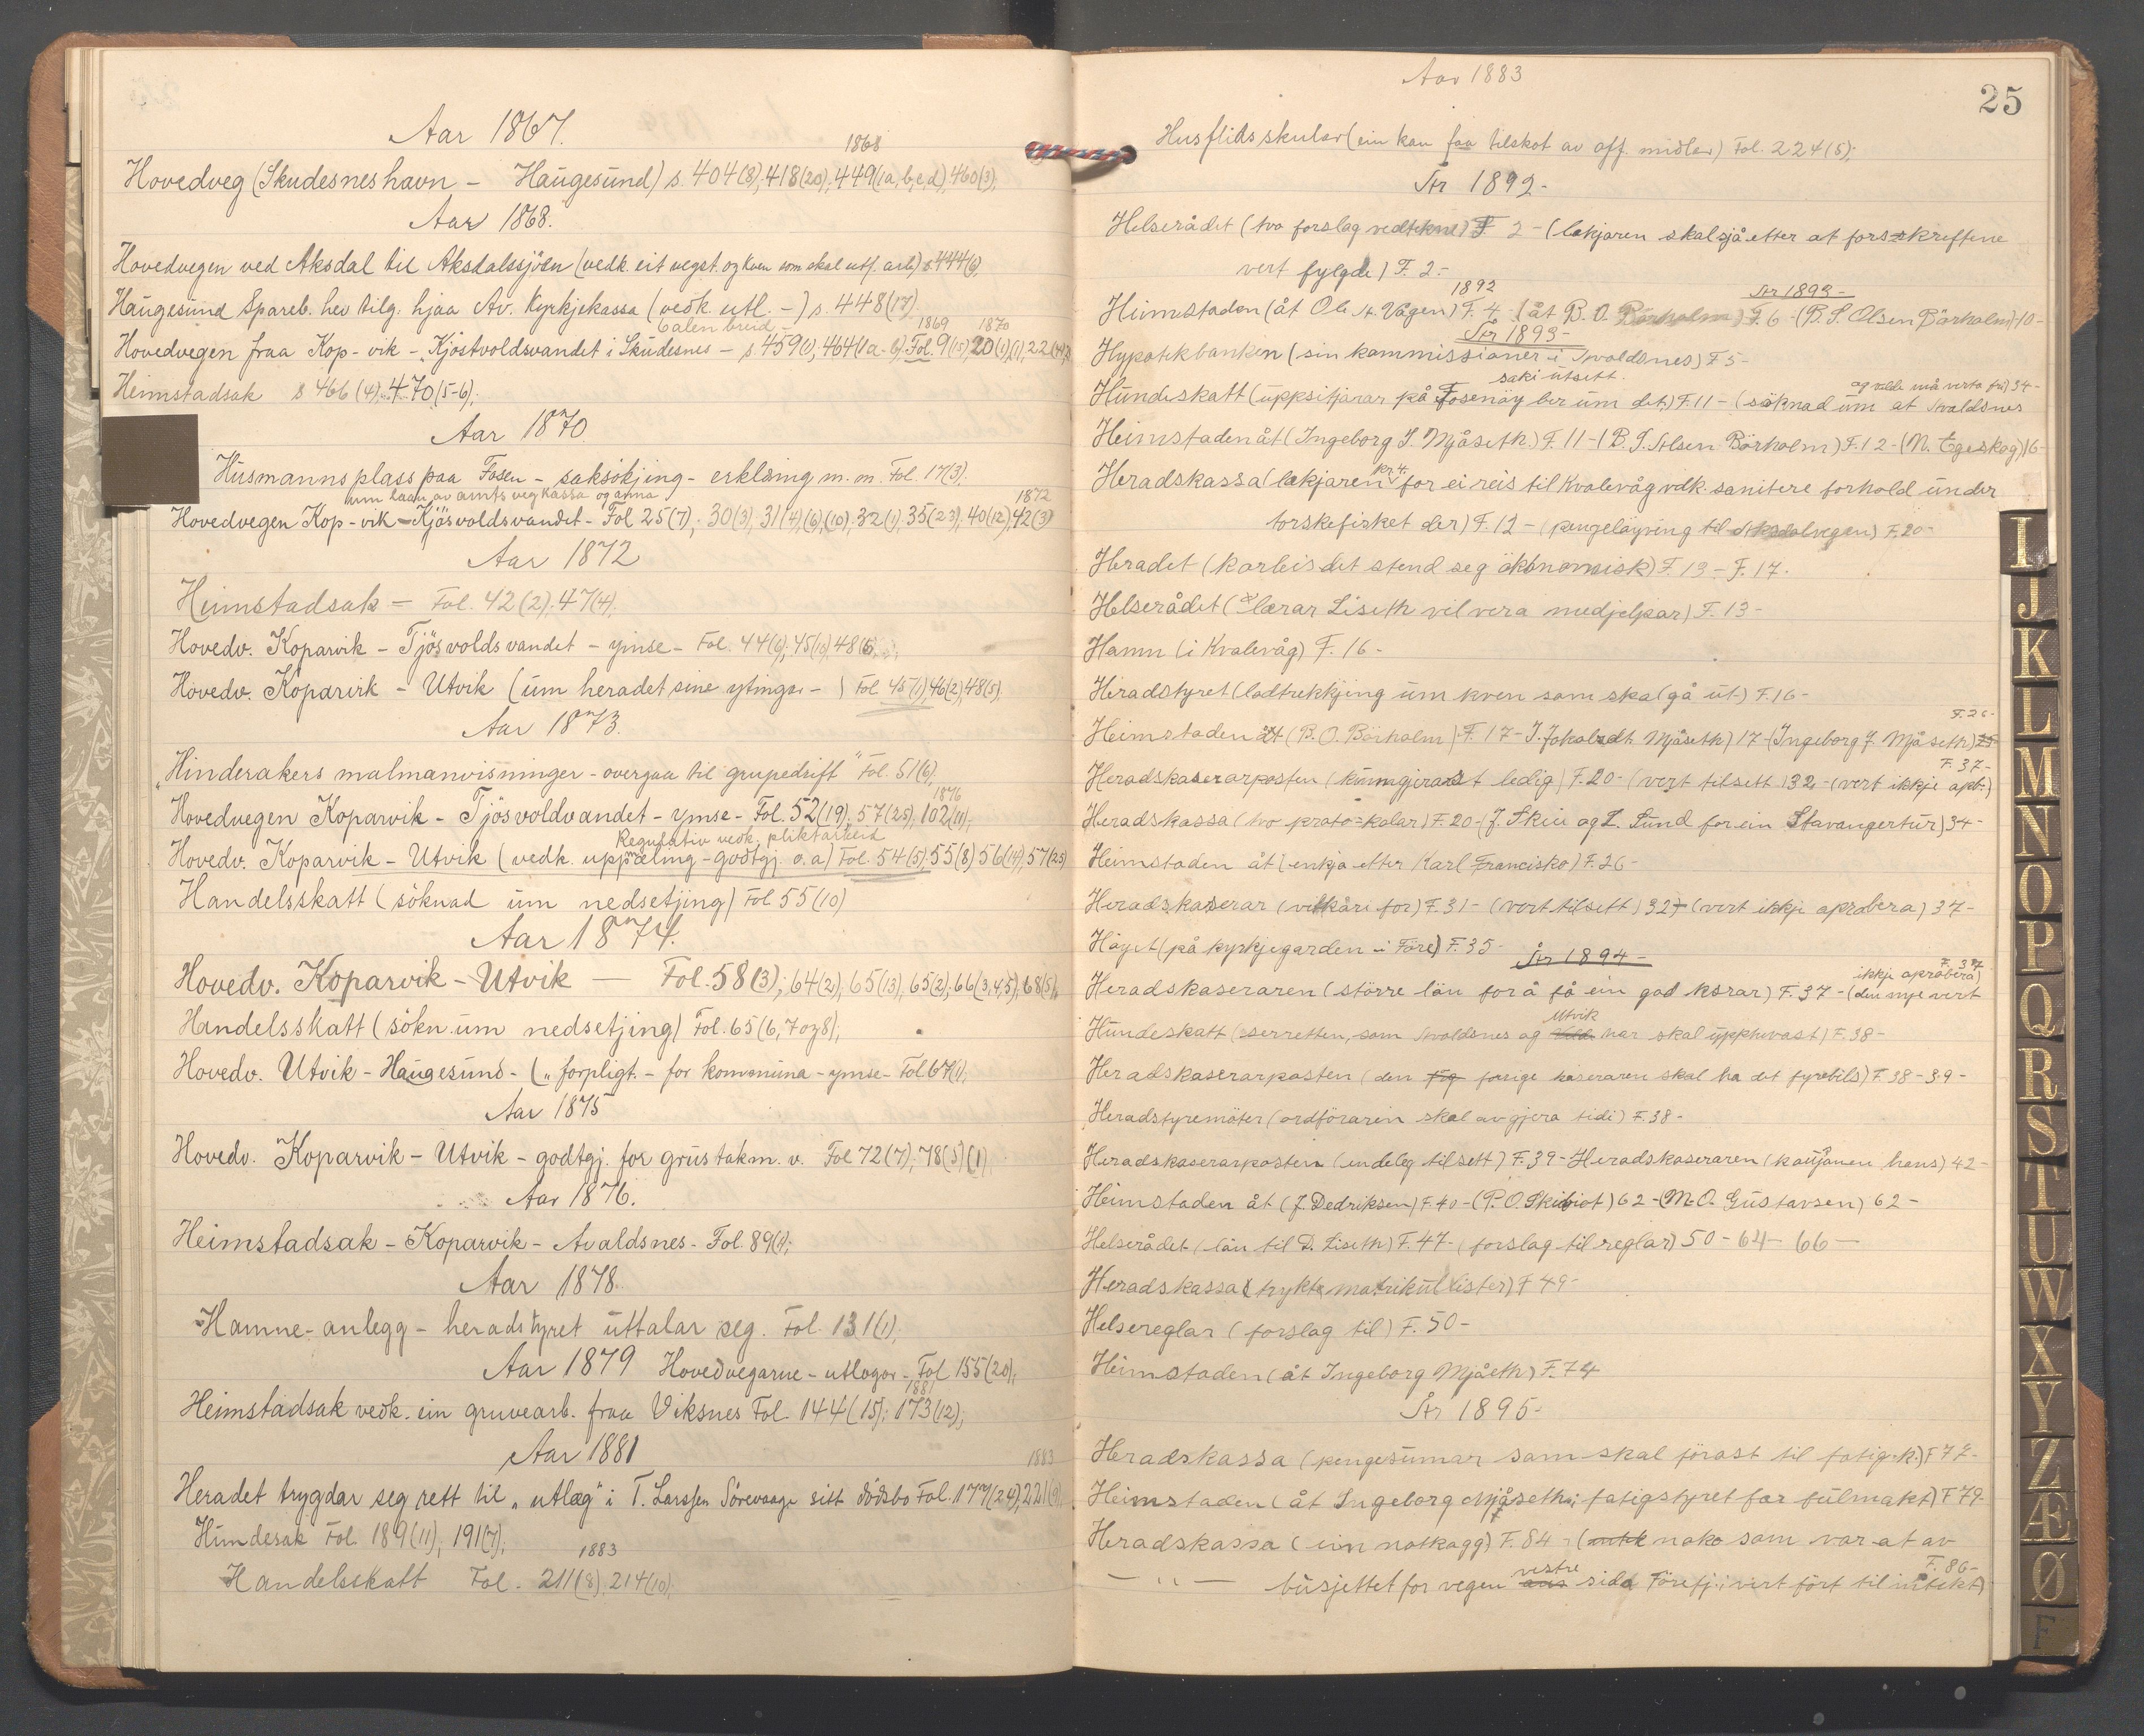 Aar 1867.
1868
Hovedveg (Skudesneshavn - Haugesund) s. 404(8), 418(20), 449(1a,b,c,d), 460(3),
Aar 1868.
Hovedvegen ved Aksdal til Aksdalssjöen (vedk. eit vegst. og kven som skal utf. arb.) s 444(6),
Haugesund Spareb. hev tilg. hjaa Av. Kyrkjekassa (vedk. utl. -) s. 448(17).
6 alen breid - 1869 1870
Hovedvegen fraa Kop-vik - Kjöstvoldsvandet i Skudesnes - s 459(1), 464(1a-b) Fol. 9(15), 20(1)(1), 22(4),
Heimstadsak s 466(4), 470(5-6),
Aar 1870
Husmannsplass paa Fosen - saksökjing - erklæing m.m. Fol. 17(3).
um laan av amts vegkassa og anna 1872
Hovedvegen Kop-vik - Kjösvoldsvandet - Fol 25(7), 30(3), 31(4),(6),(10), 32(1), 35(23), 40(12), 42(3)
Aar 1872
Heimstadsak - Fol. 42(2), 47(4).
Hovedv. Koparvik - Tjösvoldsvandet - ymse - Fol. 44(6), 45(10), 48(6),
Hovedv. Koparvik - Utvik (um heradet sine ytingar - ) Fol 45(1), 46(2), 48(5).
Aar 1873.
"Hinderakers malmanvisninger - overgaa til grupedrift" Fol. 51(6),
1876
Hovedvegen Koparvik - Tjösvoldvandet - ymse - Fol. 52(19), 57(25), 102(11),
Regulativ vedk. pliktarbeid
Hovedv. Koparvik - Utvik (vedk. uppmæling - godtgj. o.a) Fol. 54(5), 55(8) 56(14), 57(25)
Handelsskatt (söknad um nedsetjing) Fol 55(10)
Aar 1874.
Hovedv. Koparvik - Utvik - Fol. 58(3), 64(2), 65(13), 65(2), 66(3,4,5), 68(5),
Handelsskatt (sökn. um nedsetjing) Fol. 65(6, 7 og 8),
Hovedv. Utvik - Haugesund - (" forpligt. - for kommuna - ymse - Fol 67(1),
Aar 1875
Hovedv. Koparvik - Utvik - godtgj. for grustak m. v. Fol 72(7), 78(3)(1),
Aar 1876.
Heimstadsak - Koparvik - Avaldsnes - Fol. 89(1),
Aar 1878.
Hamne-anlegg - heradstyret uttalar seg. Fol. 131(1),
Aar 1879 Hovedvegarne - utlogor - Fol 155(20),
1881
Heimstadsak vedk. ein gruvearb. fraa Viksnes Fol. 144(15), 173(12),
Aar 1881
1883
Heradet trygdar seg rett til "utlæg" i T. Larssen Sörevaage sitt dödsbo Fol. 177(24), 221(9),
Hundesak Fol. 189(11), 191(7),
1883
Handelsskatt Fol. 211(8), 214(10),
Aar 1883
25
Husflidsskular (ein kan faa tilskot av off. midlar) Fol. 224(5),
År 1892-
Helserådet (tvo forslag vedtekne) F 2 - (lækjaren skal sjå etter at forsskreftene
vert fylgde) F. 2.-
1892 År 1893-
Heimstaden (åt Ole A. Vågen) F. 4 - (åt B. O. Börholm) F. 6 - (B. S. Olsen Börholm) 10-
År 1893-
Hypotekbanken (sin kommissioner i Avoldsnes) F 5-
saki utsett. og valdi må verta fri) 34-
Hundeskatt (uppsitjarar på Fosenöy ber um det) F. 11 - (söknad um at Avaldsnes
Heimstaden åt (Ingeborg J. Mjåseth) F. 11 - (B. S. Olsen Börholm) F. 12 - (N. Egeskog) 16-
kr 4.
Heradskassa (lækjaren for ei reis til Kvalevåg vdk. sanitere forhold under
torskefisket der) F. 12 - (pengelöyving til Aksdalvegen) F. 20-
Heradet (korleis det stend seg ökonomisk) F. 13 - F. 17.
Helserådet (lærar Liseth vil vera medjelpar) F. 13-
Hamn (i Kvalevåg) F. 16-
Heradstyret (lodtrekkjing um kven som skal gå ut) F. 16-
F. 26-
Heimstaden åt (B. O. Börholm) F. 17 - J. Jokalsdt. Mjåseth) 17 - (Ingeborg J. Mjåseth) 25-
F. 37-
Heradskaserarposten (kunngjerast ledig) F. 20 - (vert tilsett) 32 - (vert ikkje apb.)
Heradskassa (tvo proto-kolar) F. 20 - (J. Skeie og L. Lund for ein Stavangertur) 34-
Heimstaden åt (enkja etter Karl Francisko) F. 26-
Heradskaserar (vilkåri for) F. 31 - (vert tilsett) 32 - (vert ikkje aprobera) 37-
Höyet (på kyrkjegarden i Före) F. 35- År 1894-
F. 37
ikkje aprobera)
Heradskaseraren (större lön for å få ein god karar) F. 37 - (den nye vert
Utvik
Hundeskatt (serretten, som Avoldsnes og har skal upphevast) F. 38-
Heradskaserarposten (den forige kaseraren skal ha det fyrebils) F. 38-39-
Heradstyremöter (ordföraren skal avgjera tidi) F. 38-
Heradskaserarposten (endeleg tilsett) F. 39 - Heradskaseraren (kausjonen hans) 42-
Heimstaden åt (J. Dedriksen) F. 40 - (P. O. Skibiot) 62 - (M. O. Gustavsen) 62-
Helserådet (lön til D. Liseth) F. 47 - (forslag til reglar) 50 - 64 - 66-
Heradskassa (trykte matrikullister) F 49-
Helsereglar (forslag til) F. 50-
Heimstaden (åt Ingeborg Mjåeth) F. 74
År 1895-
Heradskassa (pengesumar som skal förast til fatig.k.) F 77-
Heimstaden (åt Ingeborg Mjåseth; fatigstyret får fulmakt) F 79-
Heradskassa (ein notkagg) F. 84 - (noko som var at av
vestre F. 86-
- " - busjettet for vegen sida Förefj. vert fört til intekt)
I
J
K
L
M
N
O
P
Q
R
S
T
U
W
X
Y
Z
Æ
Ø
F